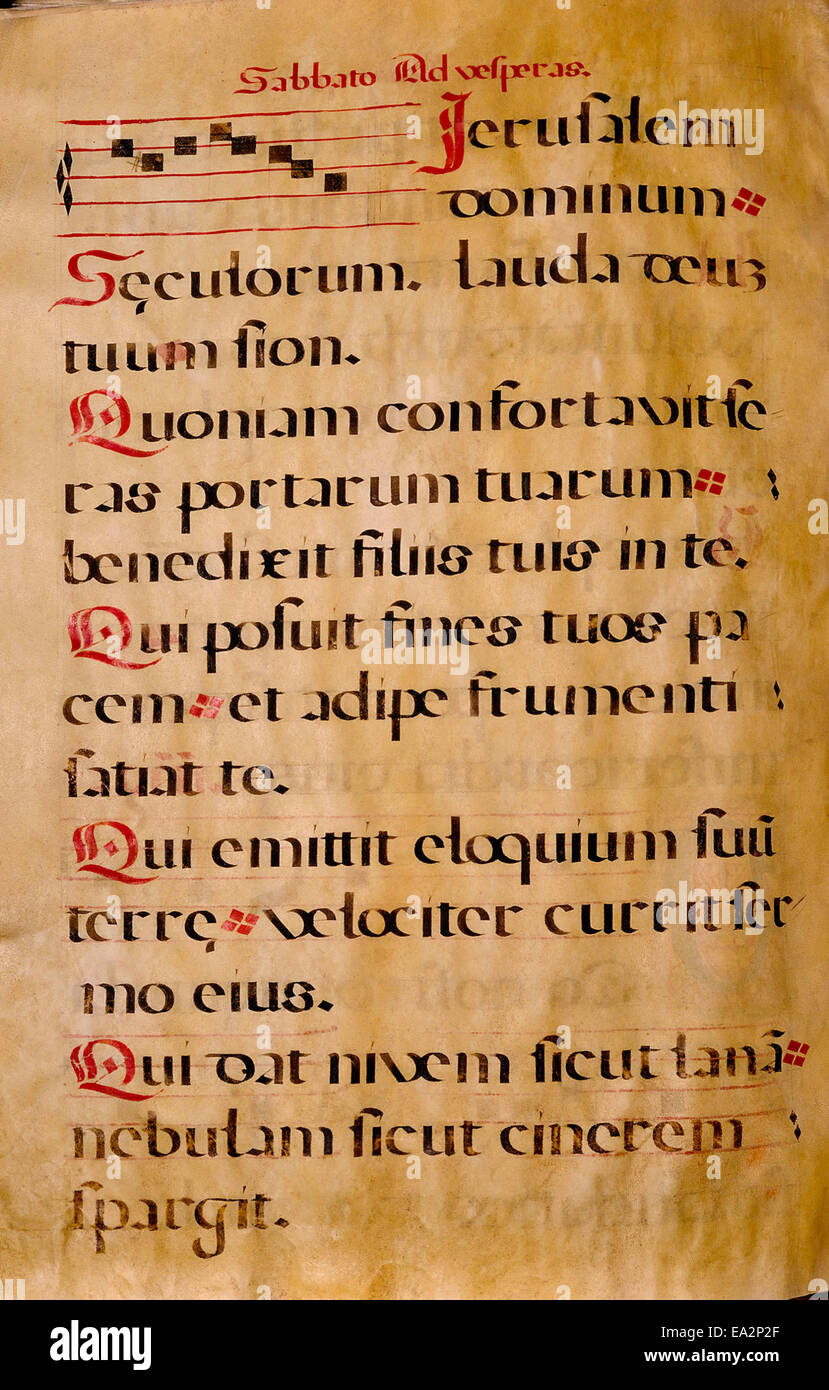 Sabbato Ad vesperas.
Jeruſalem
dominum
Sęculorum. lauda deuʒ
tuum ſion.
Quoniam confortavit ſe
ras portarum tuarum
benedixit filiis tuis in te.
Qui poſuit fines tuos pa
cem et adipe frumenti
ſatiat te.
Qui emittit eloquium ſuũ
terrę velociter currit ſer
mo eius.
Qui dat nivem ſicut lanã
nebulam ſicut cinerem
ſpargit.
alamy
Image ID: EA2P2F
www.alamy.com